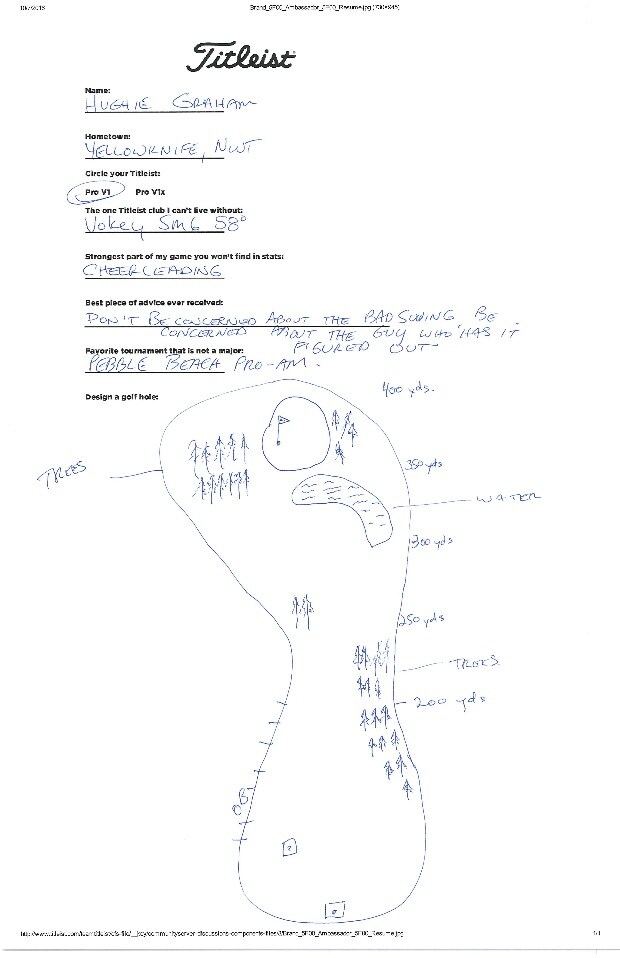 10/7/2016 Brand_5F00_Ambassador_5F00_Resume.jpg (730×945)
Titleist
Name:
HUGHIE GRAHAM
Hometown:
YELLOWKNIFE, NWT
Circle your Titleist:
Pro V1 Pro V1x
The one Titleist club I can't live without:
Vokey SM6 58°
Strongest part of my game you won't find in stats:
CHEERLEADING
Best piece of advice ever received:
DON'T BE CONCERNED ABOUT THE BAD SWING BE
CONCERNED ABOUT THE GUY WHO HAS IT
FIGURED OUT
Favorite tournament that is not a major:
PEBBLE BEACH PRO-AM.
Design a golf hole:
400 yds.
TREES
350 yds
WATER
300 yds
250 yds
TREES
200 yds
OB
http://www.titleist.com/teamtitleist/cfs-file/__key/communityserver-discussions-components-files/3/Brand_5F00_Ambassador_5F00_Resume.jpg 1/1